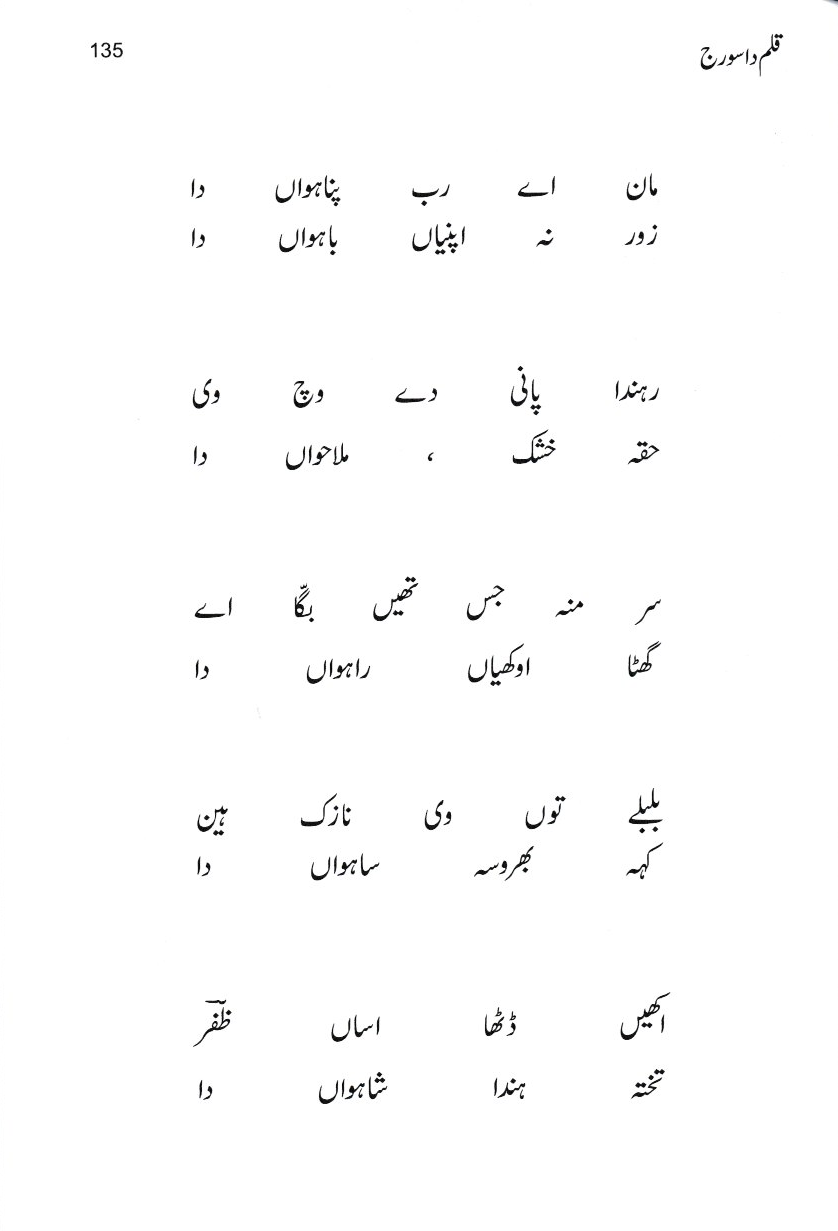 قلم دا سورج 135
مان اے رب پناہواں دا
زور نہ اپنیاں باہواں دا
رہندا پانی دے وچ وی
حقہ خشک ، ملاحواں دا
سر منہ جس تھیں بگّا اے
گھٹا اوکھیاں راہواں دا
بلبلے توں وی نازک ہین
کہہ بھروسہ ساہواں دا
اکھیں ڈٹھا اساں ظفرؔ
تختہ ہندا شاہواں دا